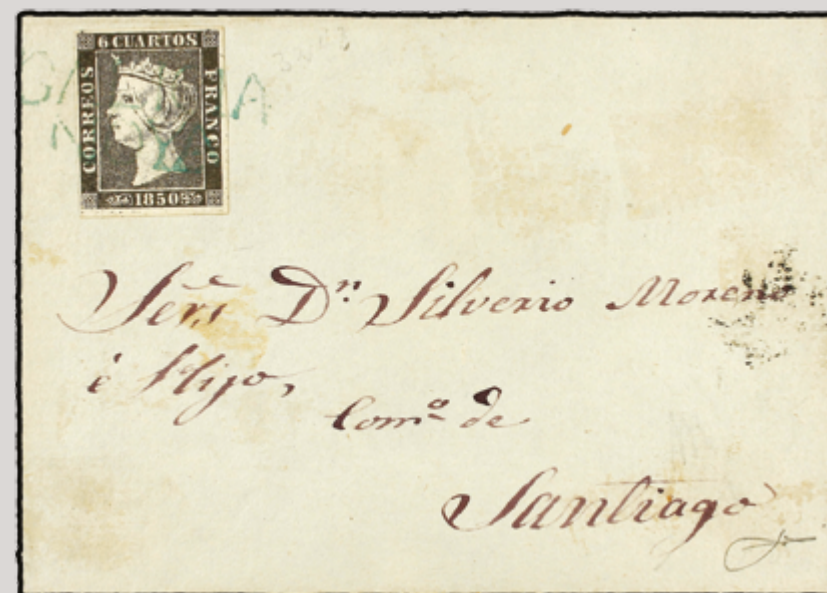 6 CUARTOS
CORREOS
FRANCO
1850
Señrs Dn. Silverio Moreno
è Hijo,
Comº de
Santiago